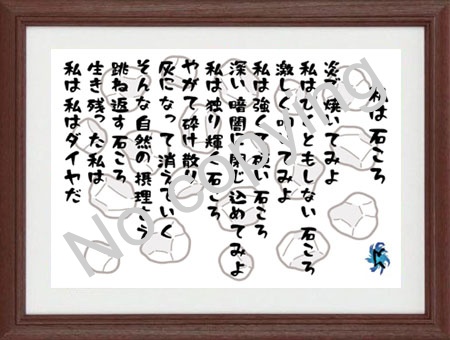 私は 石ころ
炎で焼いてみよ
私はびくともしない 石ころ
激しく叩いてみよ
私は強くて硬い 石ころ
深い暗闇に閉じ込めてみよ
私は独り輝く石ころ
やがて砕け散り
灰になって消えていく
そんな自然の摂理
跳ね返す石ころ
生き残った私は
私は 私はダイヤだ
No copying